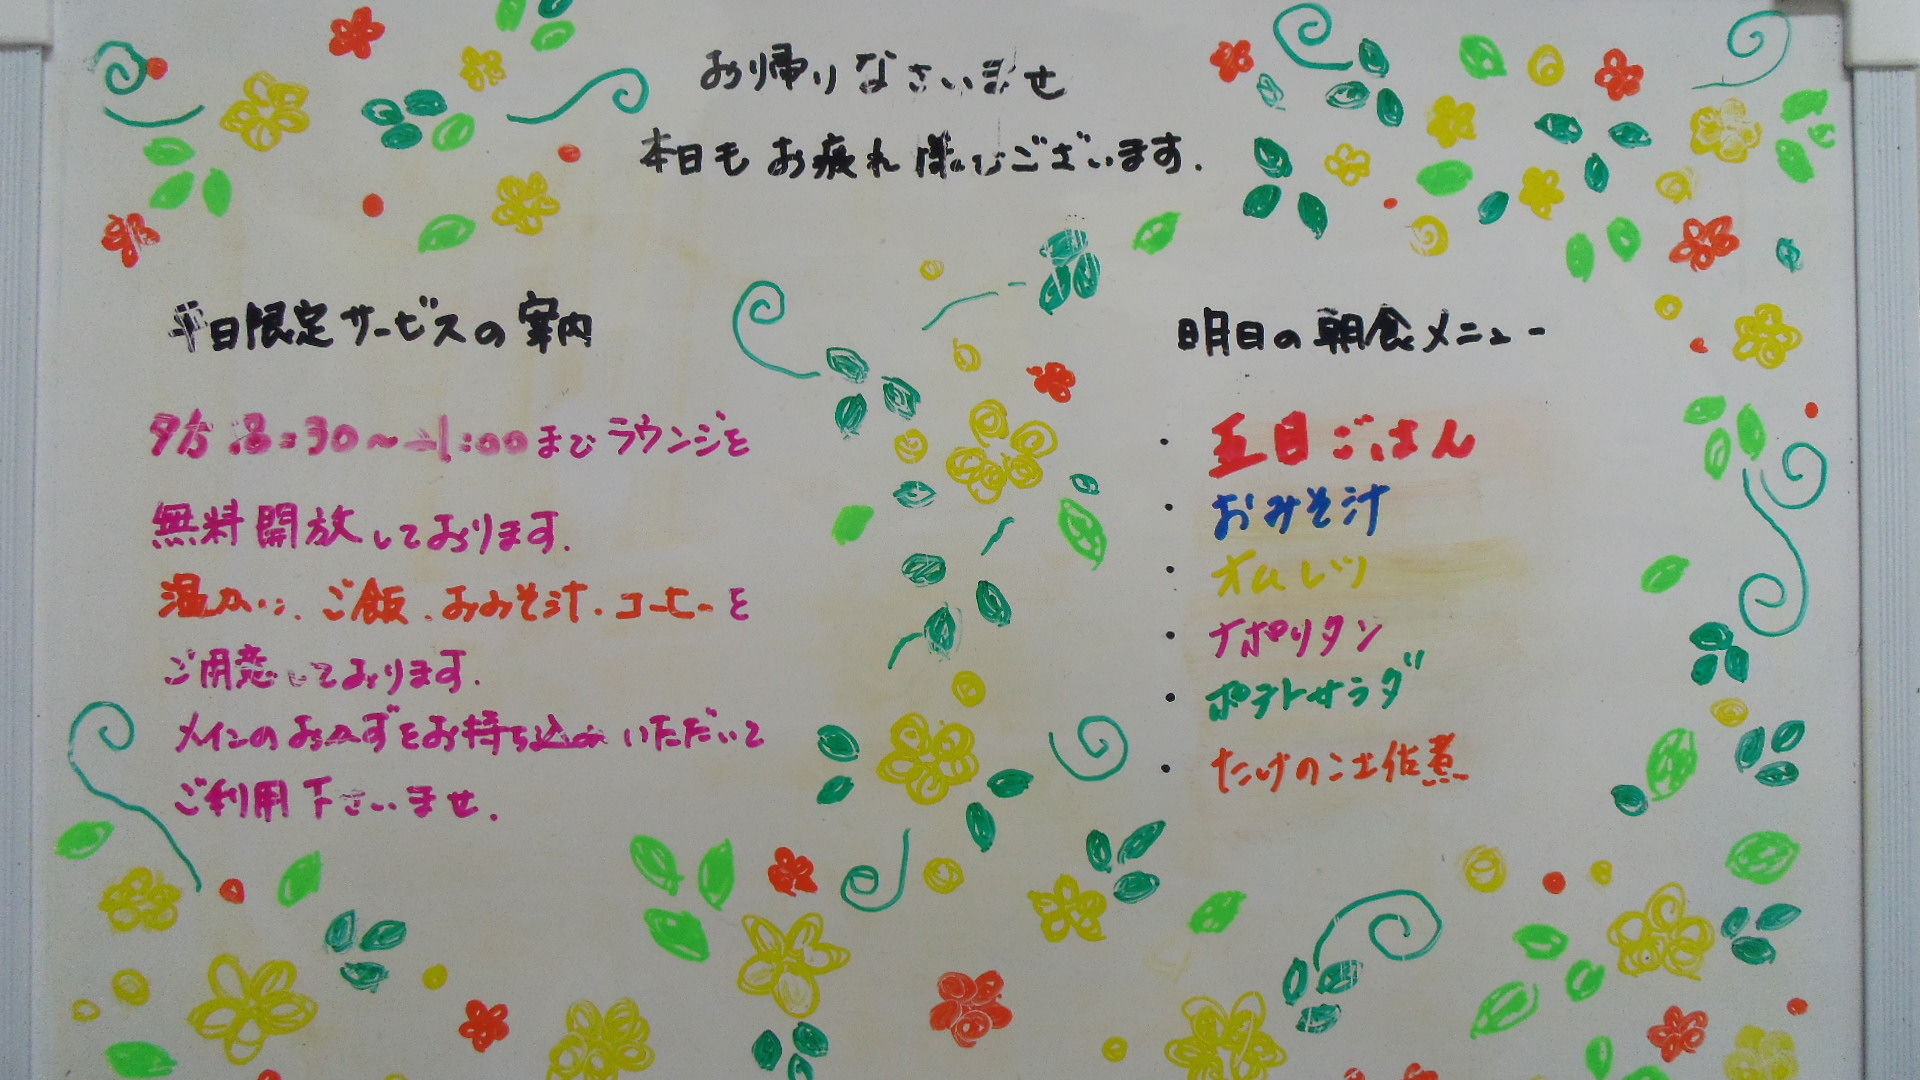 お帰りなさいませ
本日もお疲れ様でございます.
平日限定サービスの案内
夕方 :8:30～-1:00までラウンジを
無料開放しております.
温かい、ご飯、おみそ汁・コーヒーを
ご用意しております.
メインのおかずをお持ち込みいただいて
ご利用下さいませ.
明日の朝食メニュー
・五目ごはん
・おみそ汁
・オムレツ
・ナポリタン
・ポテトサラダ
・たけのこ土佐煮